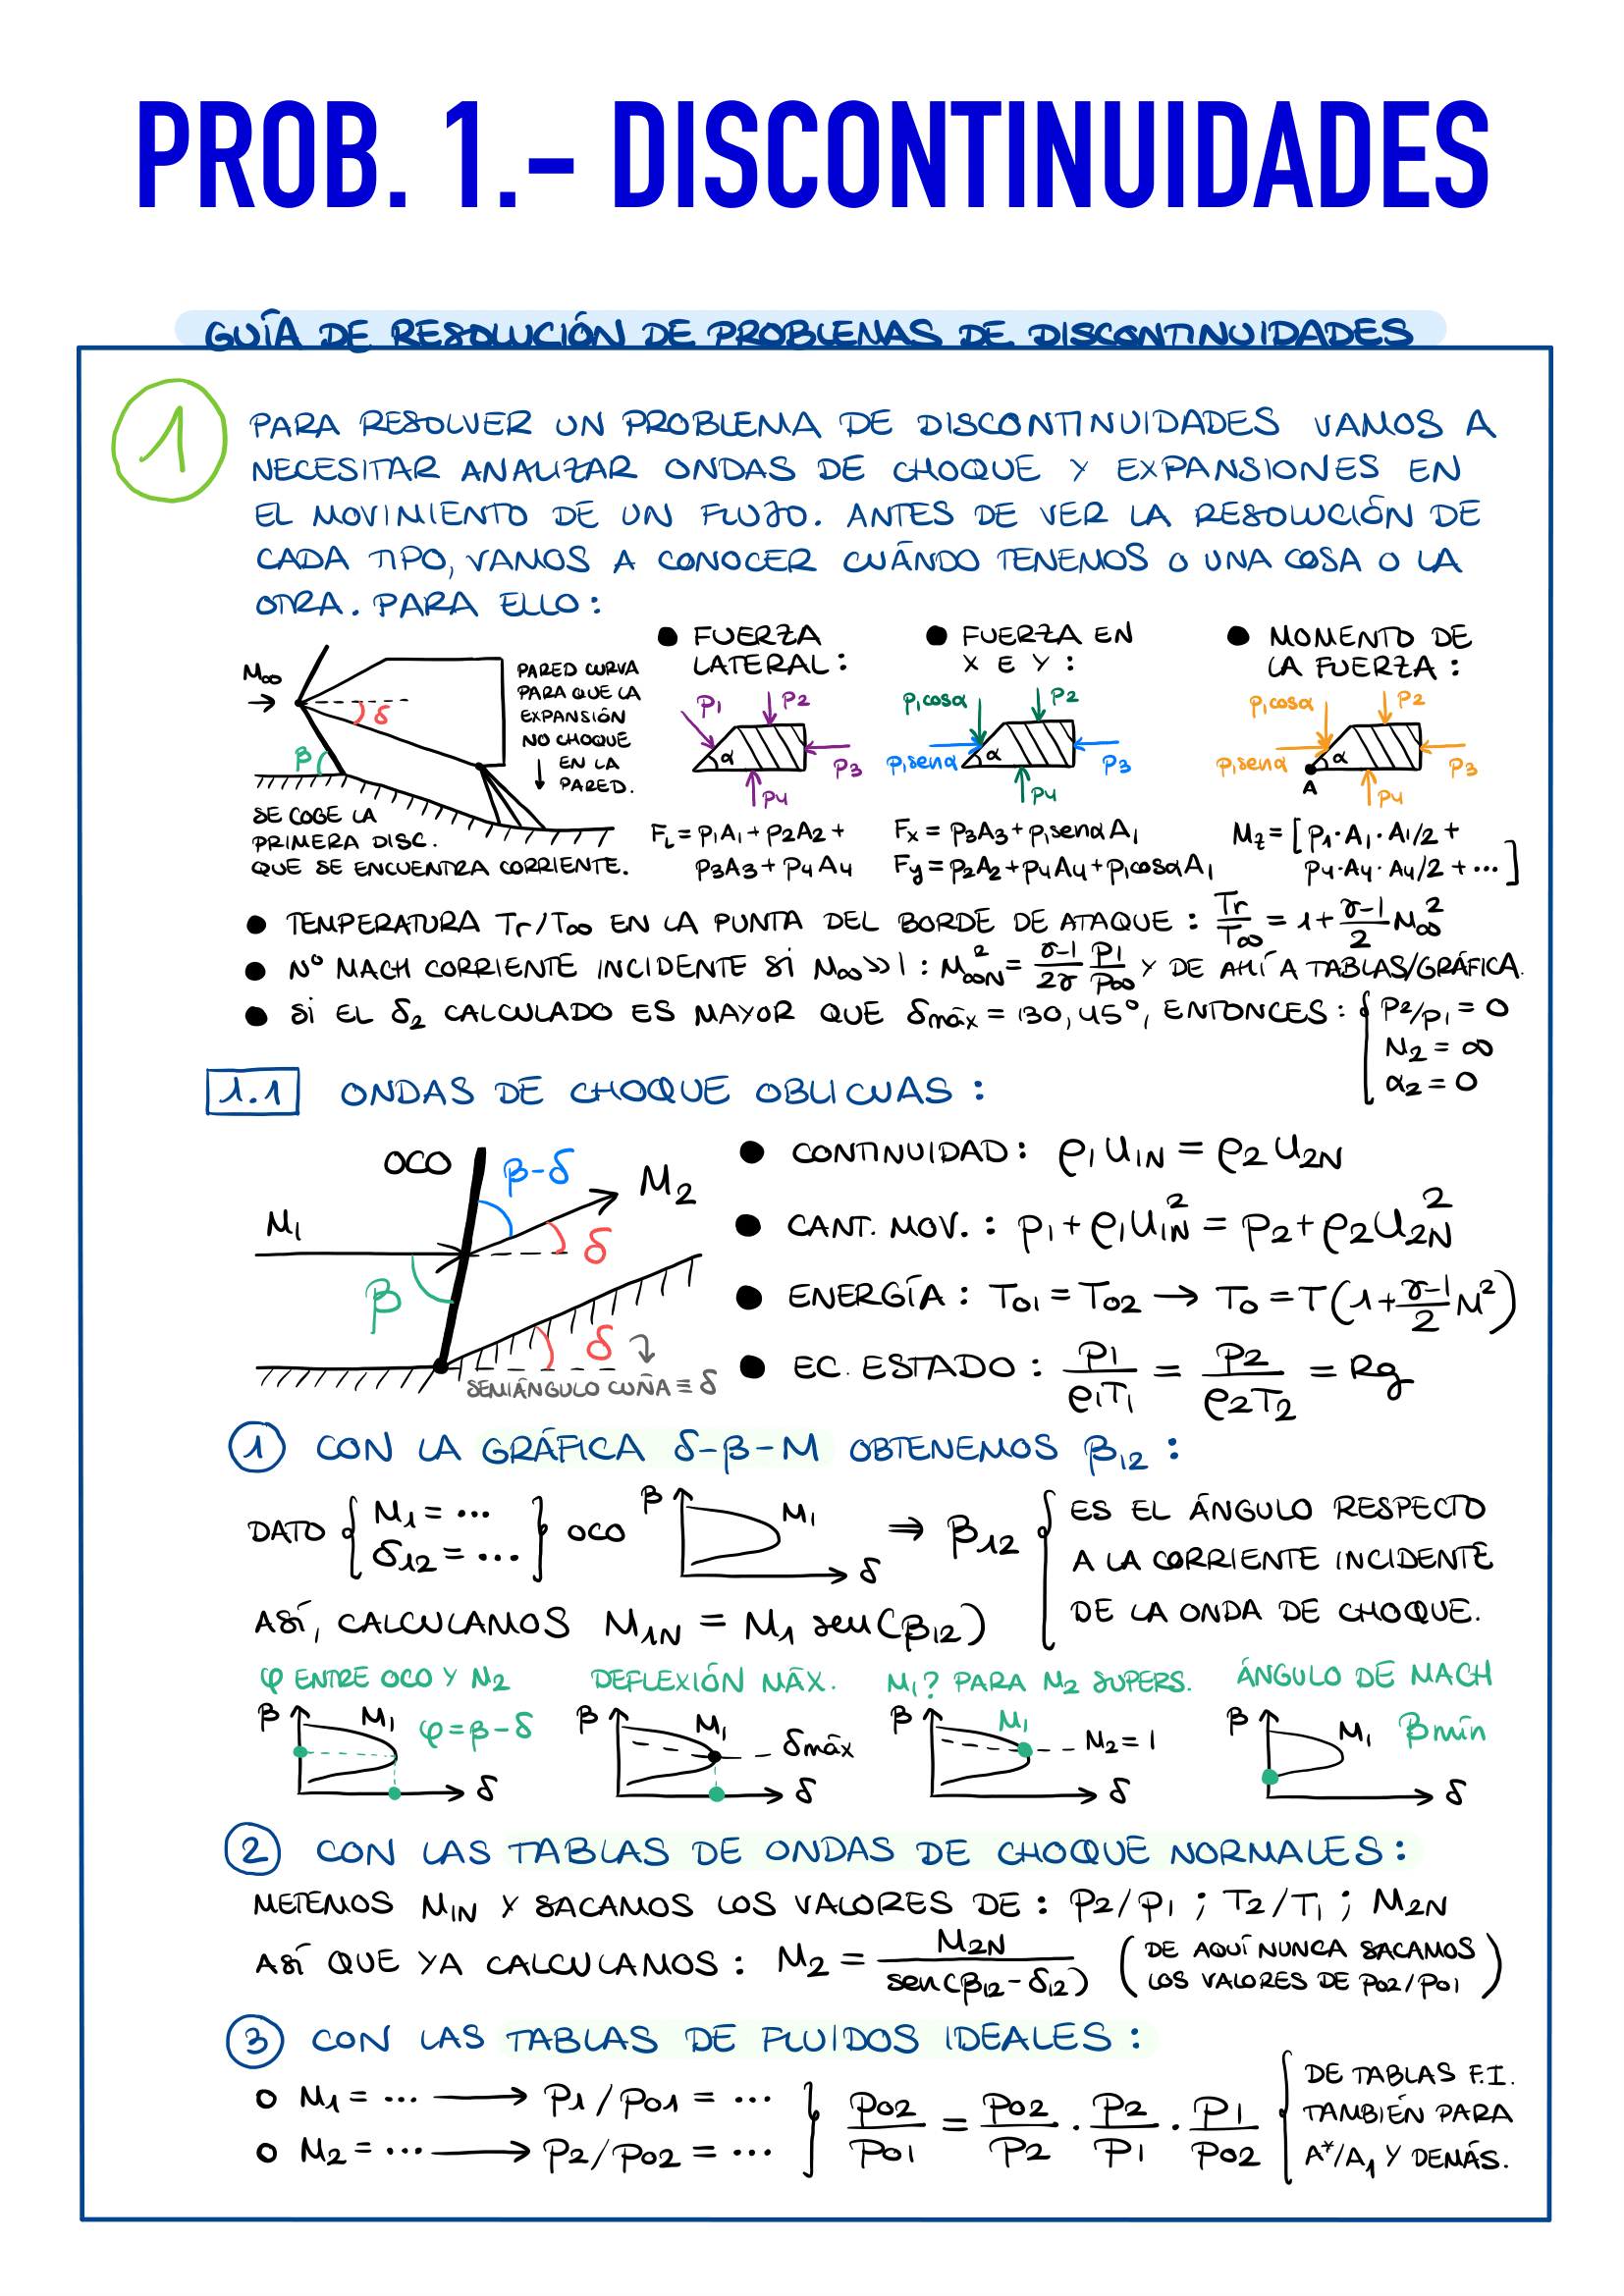 PROB. 1.- DISCONTINUIDADES
GUÍA DE RESOLUCIÓN DE PROBLEMAS DE DISCONTINUIDADES
1
PARA RESOLVER UN PROBLEMA DE DISCONTINUIDADES VAMOS A
NECESITAR ANALIZAR ONDAS DE CHOQUE Y EXPANSIONES EN
EL MOVIMIENTO DE UN FLUJO. ANTES DE VER LA RESOLUCIÓN DE
CADA TIPO, VAMOS A CONOCER CUÁNDO TENEMOS O UNA COSA O LA
OTRA. PARA ELLO:
M∞
δ
β
PARED CURVA
PARA QUE LA
EXPANSIÓN
NO CHOQUE
↓ EN LA
PARED.
SE COGE LA
PRIMERA DISC.
QUE SE ENCUENTRA CORRIENTE.
● FUERZA
LATERAL:
P1 P2
α
P3
P4
F_L = P1A1 + P2A2 +
P3A3 + P4A4
● FUERZA EN
X E Y:
P1cosα P2
P1senα α P3
P4
Fx = P3A3 + P1senαA1
Fy = P2A2 + P4A4 + P1cosαA1
● MOMENTO DE
LA FUERZA:
P1cosα P2
P1senα α P3
A P4
Mz = [P1·A1·A1/2 +
P4·A4·A4/2 + ...]
● TEMPERATURA Tr/T∞ EN LA PUNTA DEL BORDE DE ATAQUE: Tr/T∞ = 1 + (γ-1)/2 M∞²
● Nº MACH CORRIENTE INCIDENTE SI M∞>>1: M∞N² = (γ-1)/2γ P1/P∞ Y DE AHÍ A TABLAS/GRÁFICA.
● SI EL δ2 CALCULADO ES MAYOR QUE δmáx = 130,45°, ENTONCES: { P2/P1 = 0
M2 = ∞
α2 = 0
1.1 ONDAS DE CHOQUE OBLICUAS:
OCO
β-δ
M2
M1
δ
β
δ
SEMIÁNGULO CUÑA ≡ δ
● CONTINUIDAD: ρ1 U1N = ρ2 U2N
● CANT. MOV.: P1 + ρ1U1N² = P2 + ρ2U2N²
● ENERGÍA: T01 = T02 → T0 = T(1 + (γ-1)/2 M²)
● EC. ESTADO: P1/ρ1T1 = P2/ρ2T2 = Rg
1 CON LA GRÁFICA δ-β-M OBTENEMOS β12:
DATO { M1 = ... δ12 = ... } OCO β M1 δ ⇒ β12 { ES EL ÁNGULO RESPECTO
A LA CORRIENTE INCIDENTE
DE LA ONDA DE CHOQUE.
ASÍ, CALCULAMOS M1N = M1 sen(β12)
φ ENTRE OCO Y M2
β M1 φ=β-δ
δ
DEFLEXIÓN MÁX.
β M1 δmáx
δ
M1? PARA M2 SUPERS.
β M1 M2 = 1
δ
ÁNGULO DE MACH
β M1 βmín
δ
2 CON LAS TABLAS DE ONDAS DE CHOQUE NORMALES:
METEMOS M1N Y SACAMOS LOS VALORES DE: P2/P1 ; T2/T1 ; M2N
ASÍ QUE YA CALCULAMOS: M2 = M2N/sen(β12-δ12) (DE AQUÍ NUNCA SACAMOS
LOS VALORES DE P02/P01)
3 CON LAS TABLAS DE FLUIDOS IDEALES:
○ M1 = ... → P1/P01 = ...
○ M2 = ... → P2/P02 = ...
} P02/P01 = P02/P2 · P2/P1 · P1/P02
{ DE TABLAS F.I.
TAMBIÉN PARA
A*/A1 Y DEMÁS.